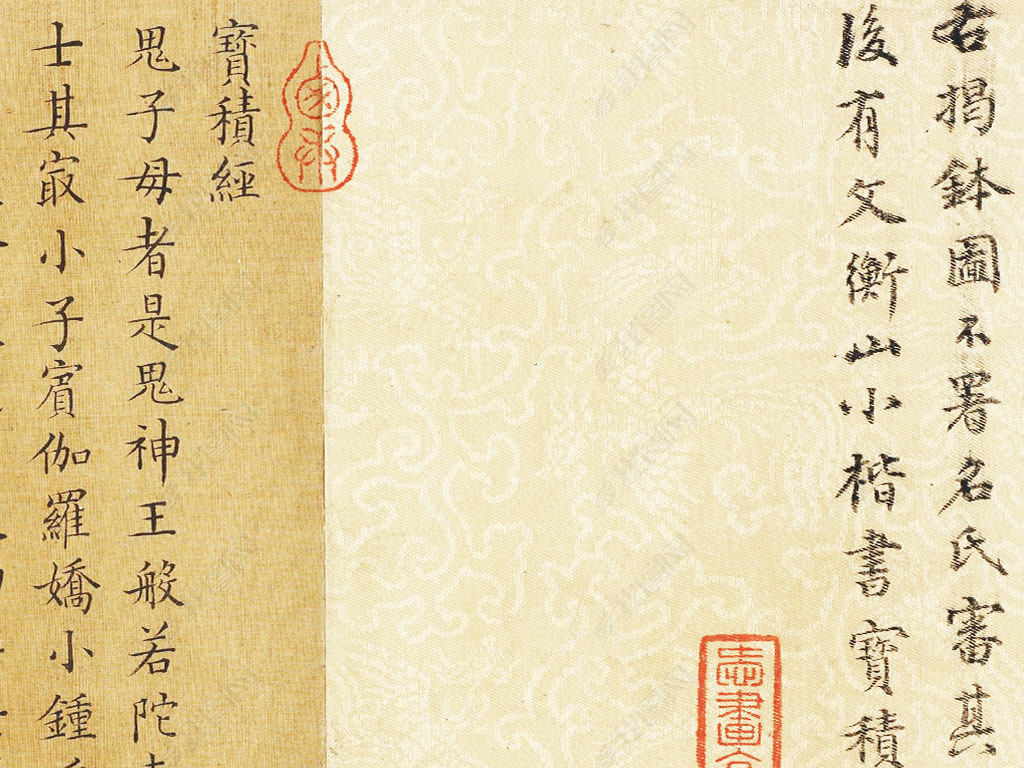 右揭鉢圖不署名氏審其
後有文衡山小楷書寶積
寶積經
鬼子母者是鬼神王般若陀
士其㝡小子賓伽羅嬌小鍾